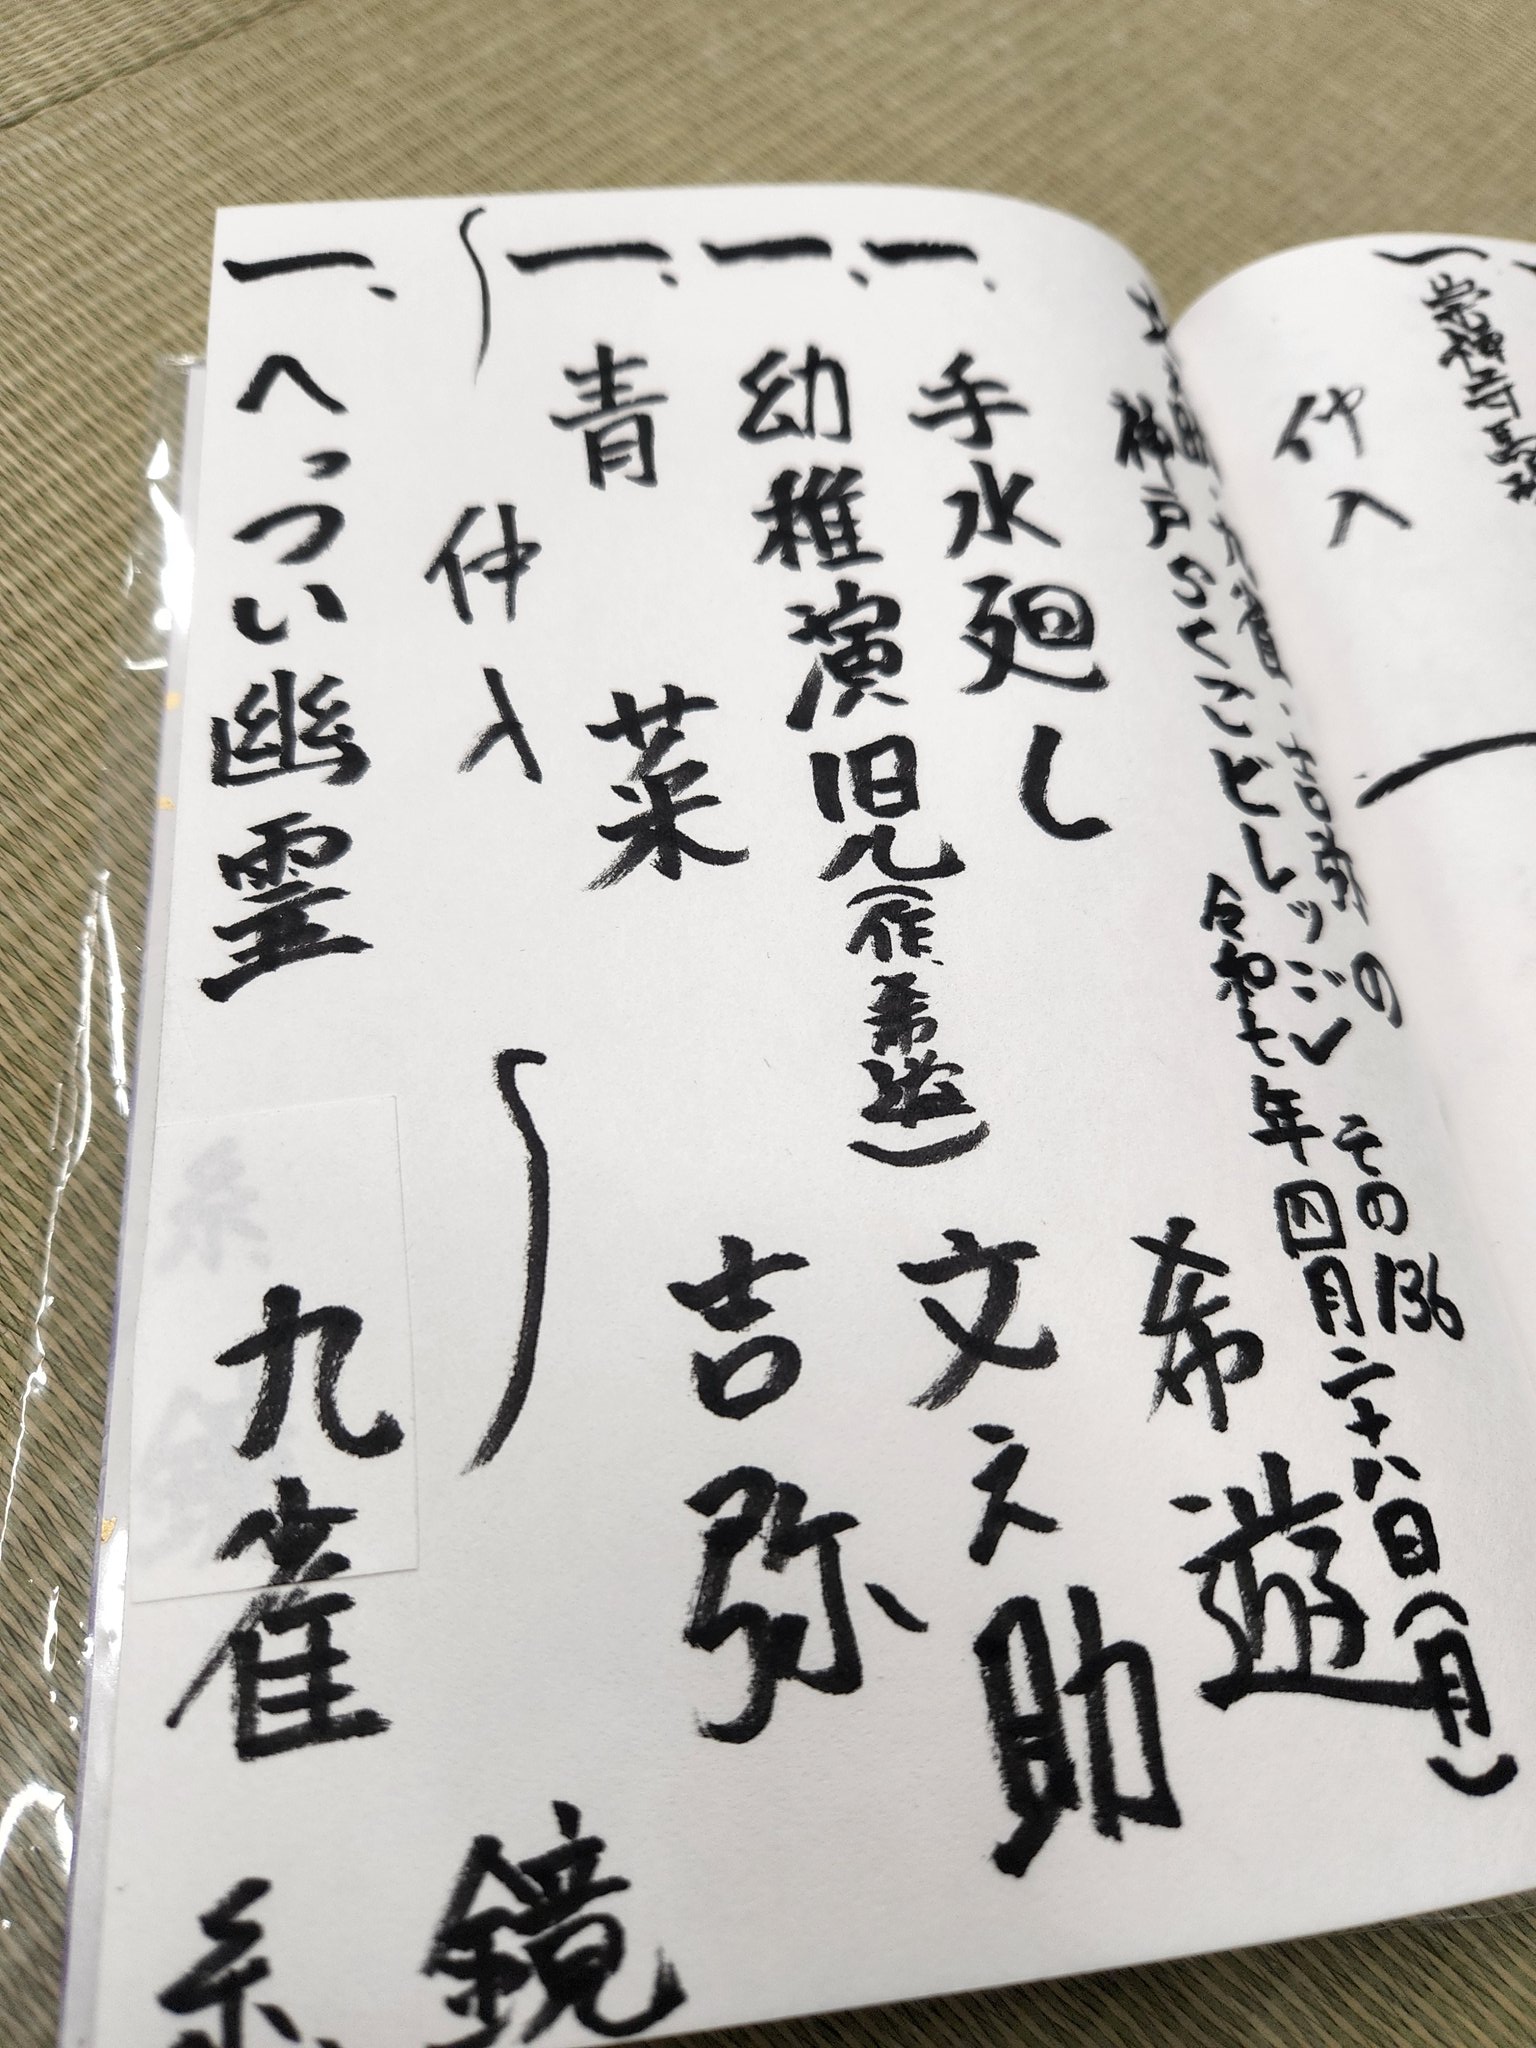 一、崇禅寺馬場
仲入
九雀・の その136
神戸らくごビレッジ
令和七年四月二十八日(月)
一、手水廻し 希遊
一、幼稚演児(作、希遊) 文之助
一、青菜 吉弥
仲入
一、へっつい幽霊 九雀
鏡
糸